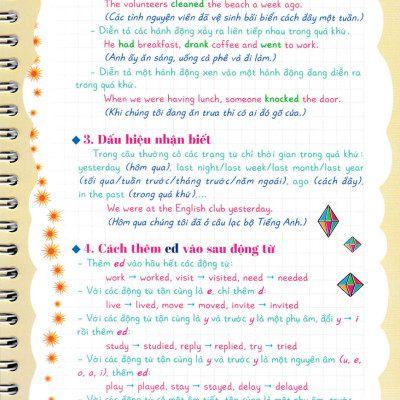 The volunteers cleaned the beach a week ago.
(Các tình nguyện viên đã vệ sinh bãi biển cách đây một tuần.)
– Diễn tả các hành động xảy ra liên tiếp nhau trong quá khứ.
He had breakfast, drank coffee and went to work.
(Anh ấy ăn sáng, uống cà phê và đi làm.)
– Diễn tả một hành động xen vào một hành động đang diễn ra
trong quá khứ.
When we were having lunch, someone knocked the door.
(Khi chúng tôi đang ăn trưa thì có ai đó gõ cửa.)
3. Dấu hiệu nhận biết
Trong câu thường có các trạng từ chỉ thời gian trong quá khứ:
yesterday (hôm qua), last night/last week/last month/last year
(tối qua/tuần trước/tháng trước/năm ngoái), ago (cách đây),
in the past (trong quá khứ),...
We were at the English club yesterday.
(Hôm qua chúng tôi đã ở câu lạc bộ Tiếng Anh.)
4. Cách thêm ed vào sau động từ
– Thêm ed vào hầu hết các động từ:
work → worked, visit → visited, need → needed
– Với các động từ tận cùng là e, chỉ thêm d:
live → lived, move → moved, invite → invited
– Với các động từ tận cùng là y và trước y là một phụ âm, đổi y → i
rồi thêm ed:
study → studied, reply → replied, try → tried
– Với các động từ tận cùng là y và trước y là một nguyên âm (u, e,
o, a, i), thêm ed:
play → played, stay → stayed, delay → delayed
– Với các động từ có một âm tiết, tận cùng là một phụ âm, trước